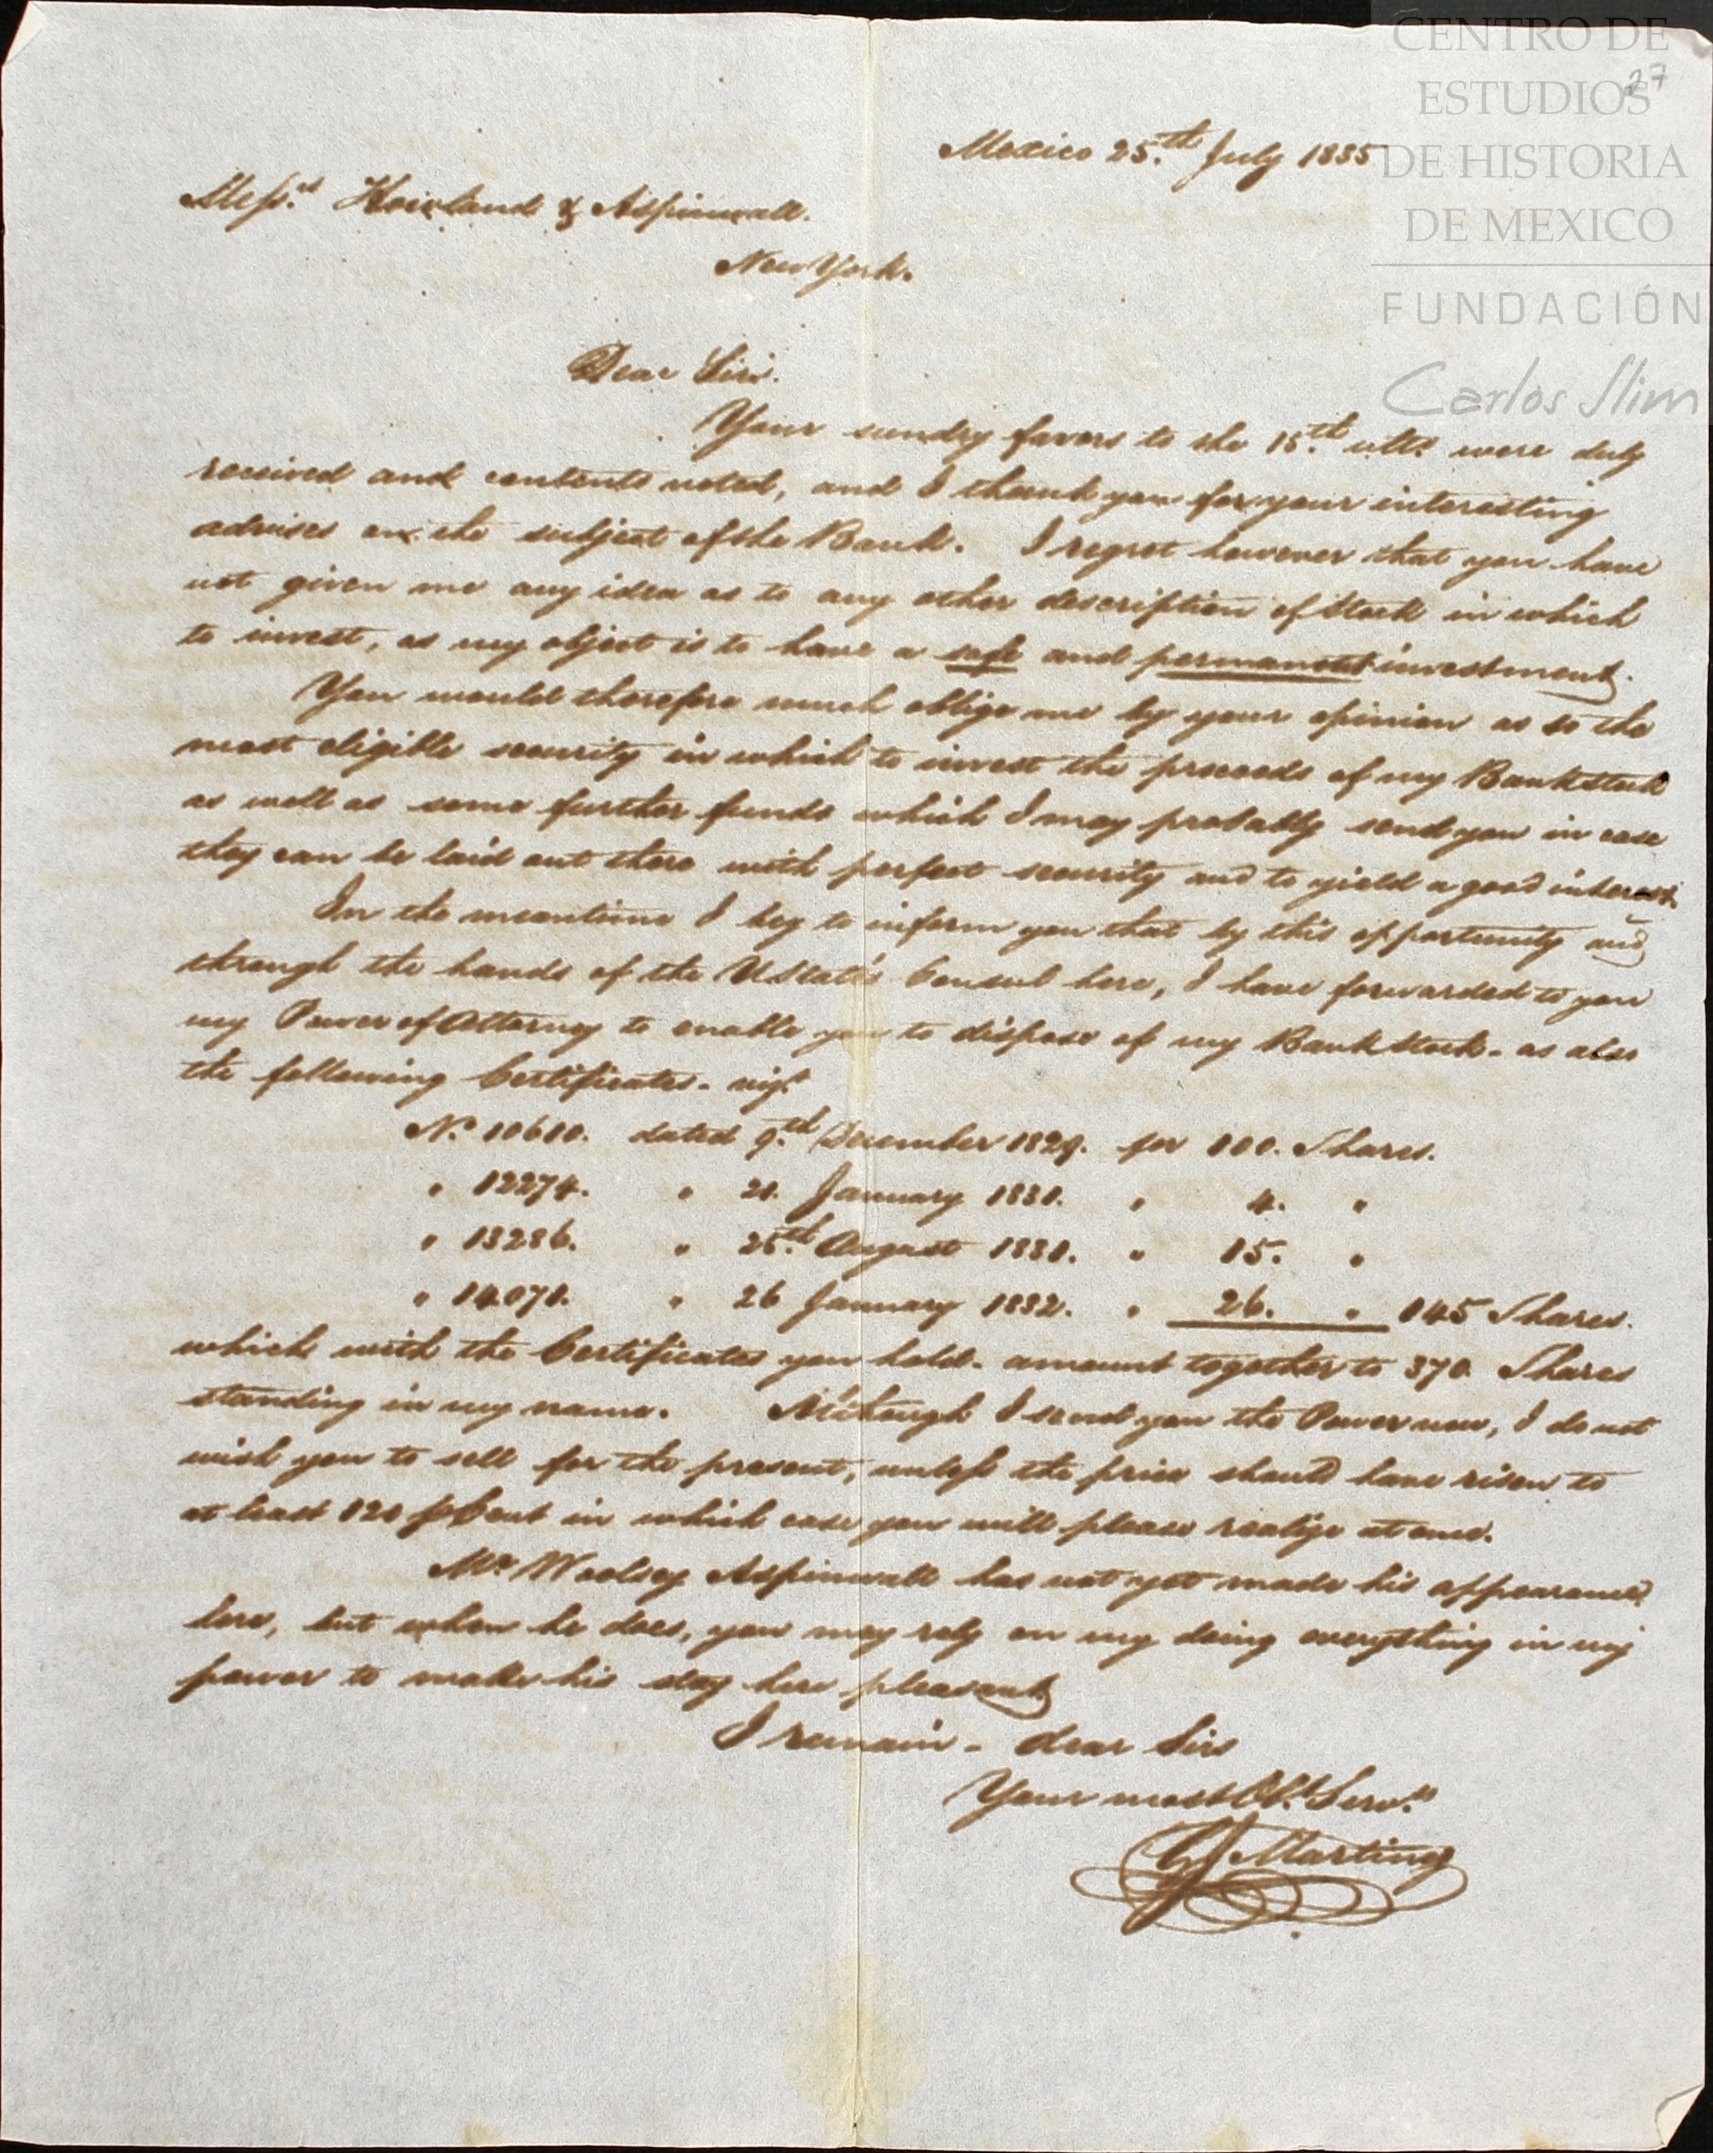 CENTRO DE
ESTUDIOS
DE HISTORIA
DE MEXICO
FUNDACIÓN
Carlos Slim
27
Mexico 25.th July 1835
Mess.rs Howland & Aspinwall.
New York.
Dear Sirs.
Your sundry favors to the 15.th ulto. were duly
received and contents noted, and I thank you for your interesting
advises on the subject of the Bank. I regret however that you have
not given me any idea as to any other description of Stock in which
to invest, as my object is to have a safe and permanent investment.
You would therefore much oblige me by your opinion as to the
most eligible security in which to invest the proceeds of my Bank Stock
as well as some further funds which I may probably send you in case
they can be laid out there with perfect security and to yield a good interest.
In the meantime I beg to inform you that by this opportunity and
through the hands of the UStates Consul here, I have forwarded to you
my Power of Attorney to enable you to dispose of my Bank Stock. as also
the following Certificates. vizt.
No. 10610. dated 9.th December 1829. for 100. Shares.
" 12274. " 21. January 1831. " 4. "
" 13286. " 25.th August 1831. " 15. "
" 14071. " 26 January 1832. " 26. " 145 Shares.
which with the Certificates you hold. amount together to 370. Shares
standing in my name. Although I send you the Power now, I do not
wish you to sell for the present, unless the price should have risen to
at least 120 pCent in which case you will please realize at once.
Mr. Woolsey Aspinwall has not yet made his appearance
here, but when he does, you may rely on my doing everything in my
power to make his stay here pleasant
I remain. dear Sirs
Your most Obt. Servt.
Martinez